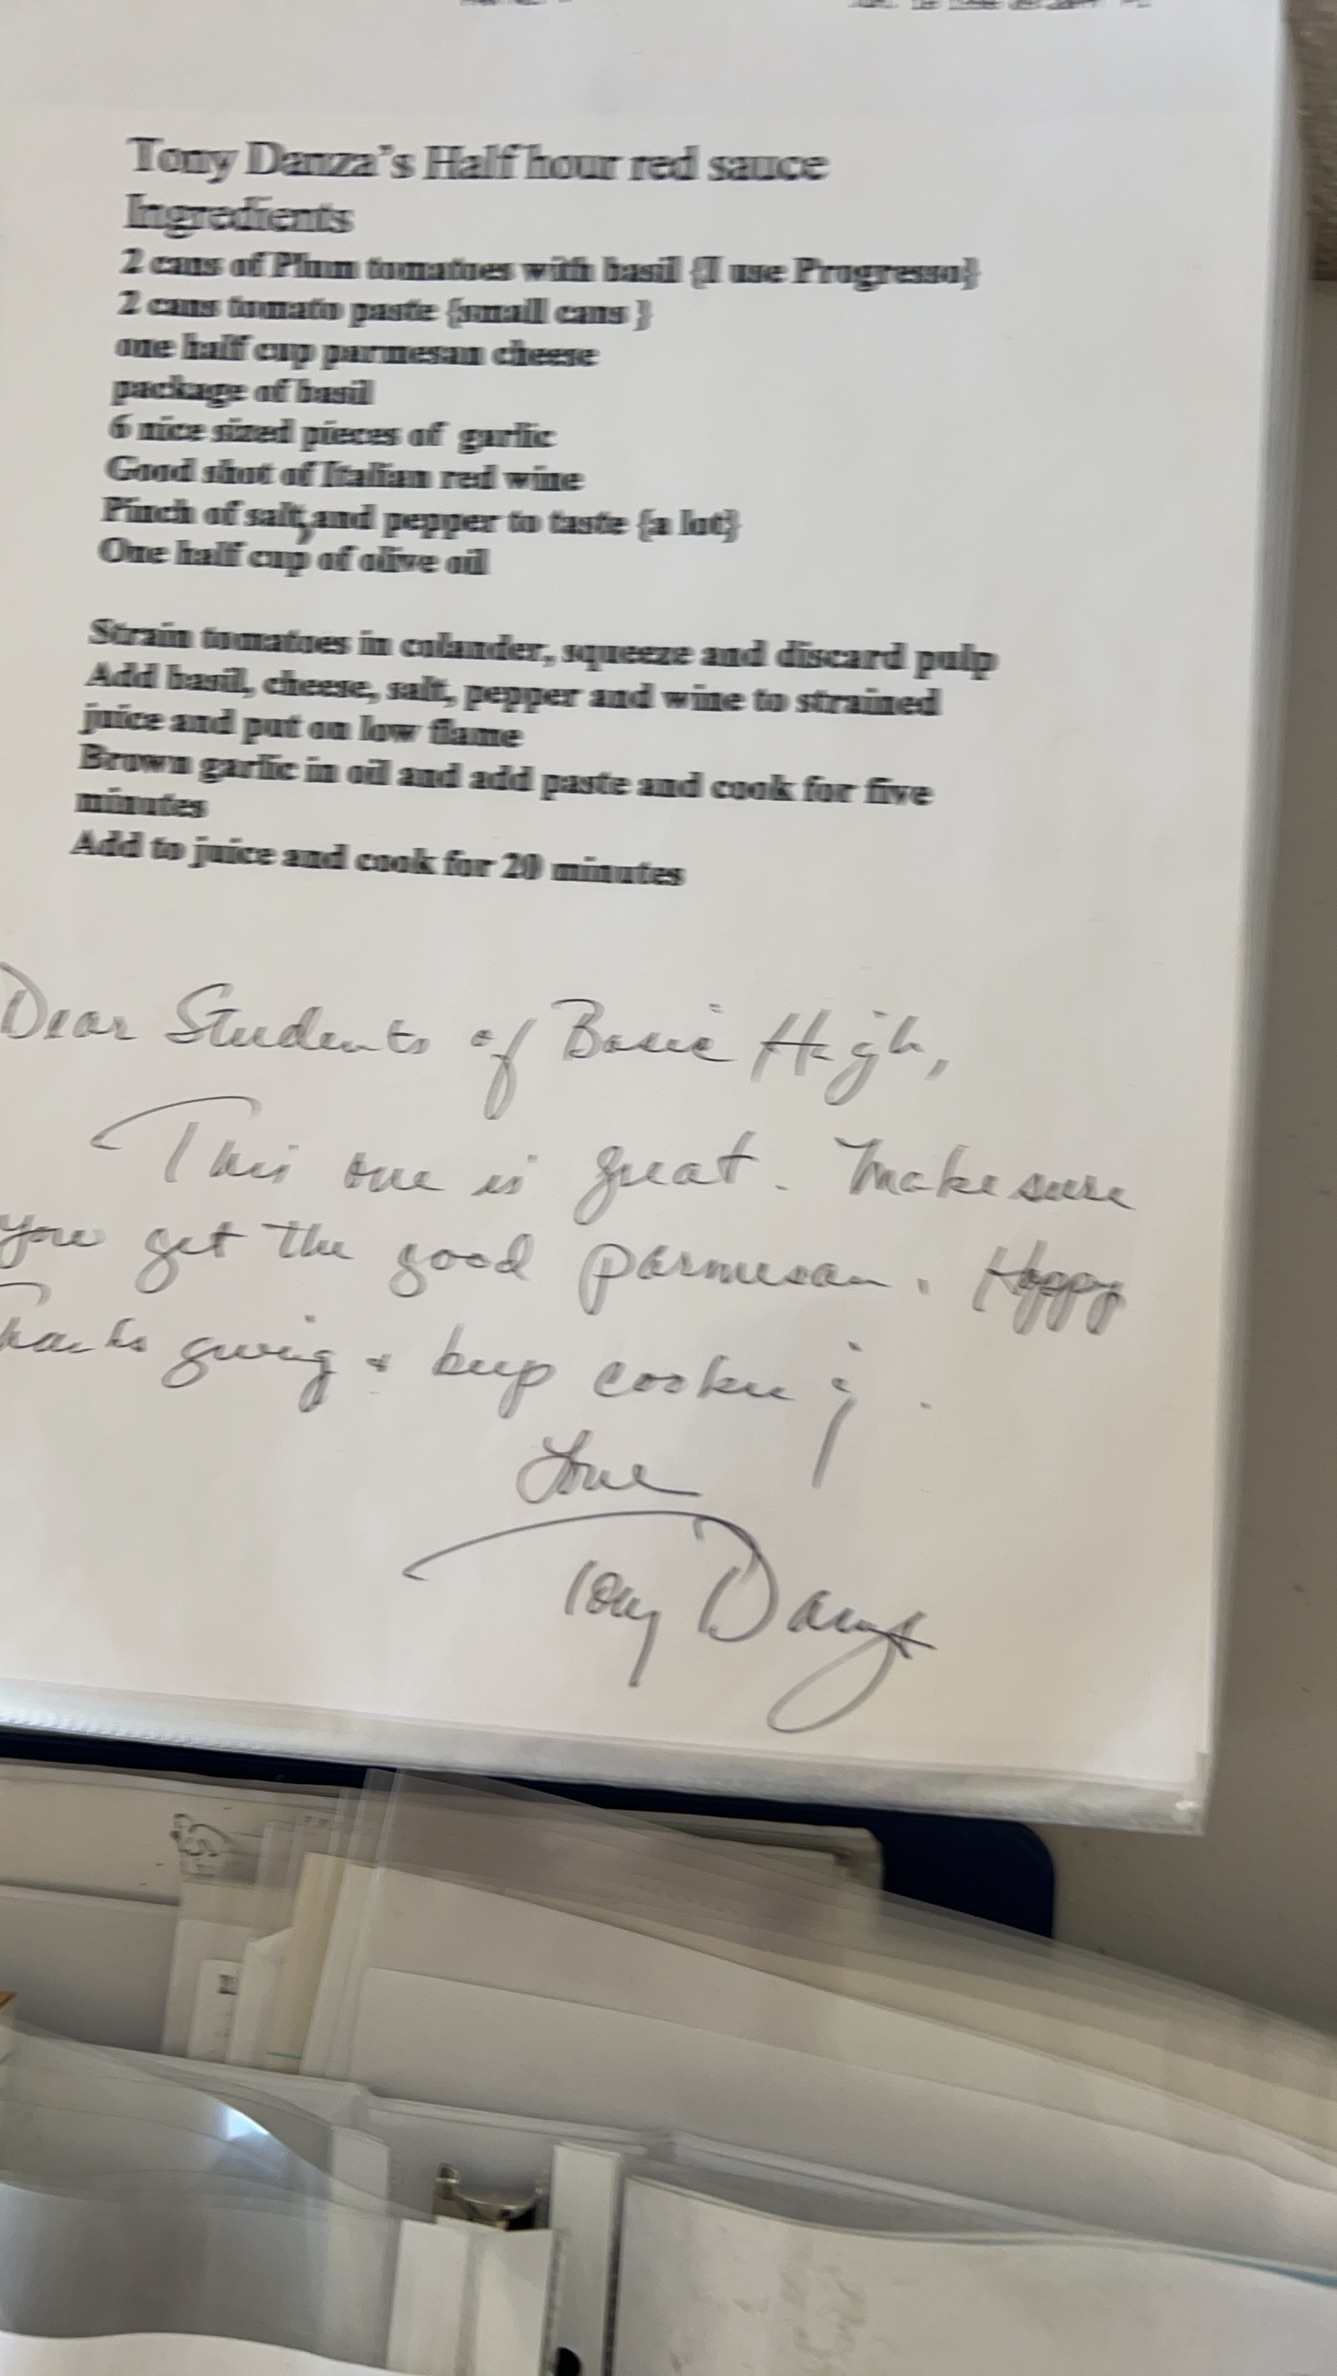 Tony Danza's Half hour red sauce
Ingredients
2 cans of Plum tomatoes with basil {I use Progresso}
2 cans tomato paste {small cans }
one half cup parmesan cheese
package of basil
6 nice sized pieces of garlic
Good shot of Italian red wine
Pinch of salt, and pepper to taste {a lot}
One half cup of olive oil
Strain tomatoes in colander, squeeze and discard pulp
Add basil, cheese, salt, pepper and wine to strained
juice and put on low flame
Brown garlic in oil and add paste and cook for five
minutes
Add to juice and cook for 20 minutes
Dear Students of Basic High,
This one is great. Make sure
you get the good parmesan. Happy
Thanksgiving & keep cooking.
Love
Tony Danza